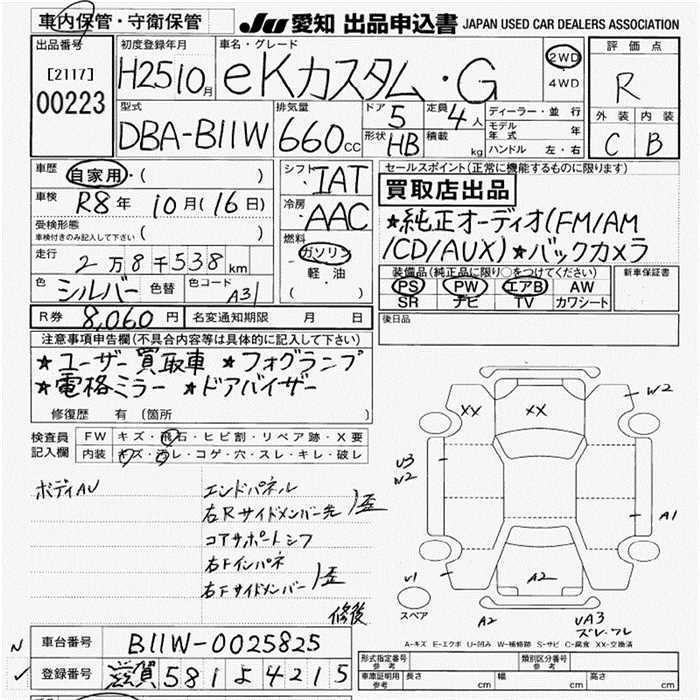 車内保管・守衛保管
JU 愛知 出品申込書 JAPAN USED CAR DEALERS ASSOCIATION
出品番号
[2117]
00223
初度登録年月
H25 10月
車名・グレード
eKカスタム・G
2WD
4WD
評価点
R
外装 内装
C B
型式
DBA-B11W
排気量
660cc
ドア 5
形状 HB
定員 4人
積載 kg
ディーラー・並行
モデル年式 年
ハンドル 左・右
車歴
自家用・( )
車検 R8年 10月(16日)
受検形態
車検付きのみ記入して下さい ( )
走行 2万8千538km
色 シルバー 色替 色コード A31
シフト IAT
冷房 AAC
燃料
ガソリン
軽油
( )
セールスポイント(正常に機能するものに限ります)
買取店出品
★純正オーディオ(FM/AM
/CD/AUX)★バックカメラ
装備品(純正品に限り○をつけてください)
PS PW エアB AW
SR ナビ TV カワシート
新車保証書
R券 8,060円 名変通知期限 月 日
後日品
注意事項申告欄(不具合内容等は具体的に記入して下さい)
★ユーザー買取車 ★フォグランプ
★電格ミラー ★ドアバイザー
修復歴 有(箇所 )
検査員記入欄
FW キズ・飛石・ヒビ割・リペア跡・X要
内装 キズ・汚レ・コゲ・穴・スレ・キレ・破レ
ボディAU
エンドパネル
右Rサイドメンバー先 歪
コアサポートシフ
右Fインパネ
右Fサイドメンバー 歪
修後
XX
XX
W2
U3
W2
A1
U1
A2
スペア
A2
UA3
ズレ,ワレ
A-キズ E-エクボ U-凹み W-補修跡 S-サビ C-腐食 XX-交換済
N
車台番号 B11W-0025825
✓
登録番号 滋賀 581 よ 4215
形式指定番号
参考
類別区分番号
参考
車庫証明用
参考
長さ cm 幅 cm 高さ cm